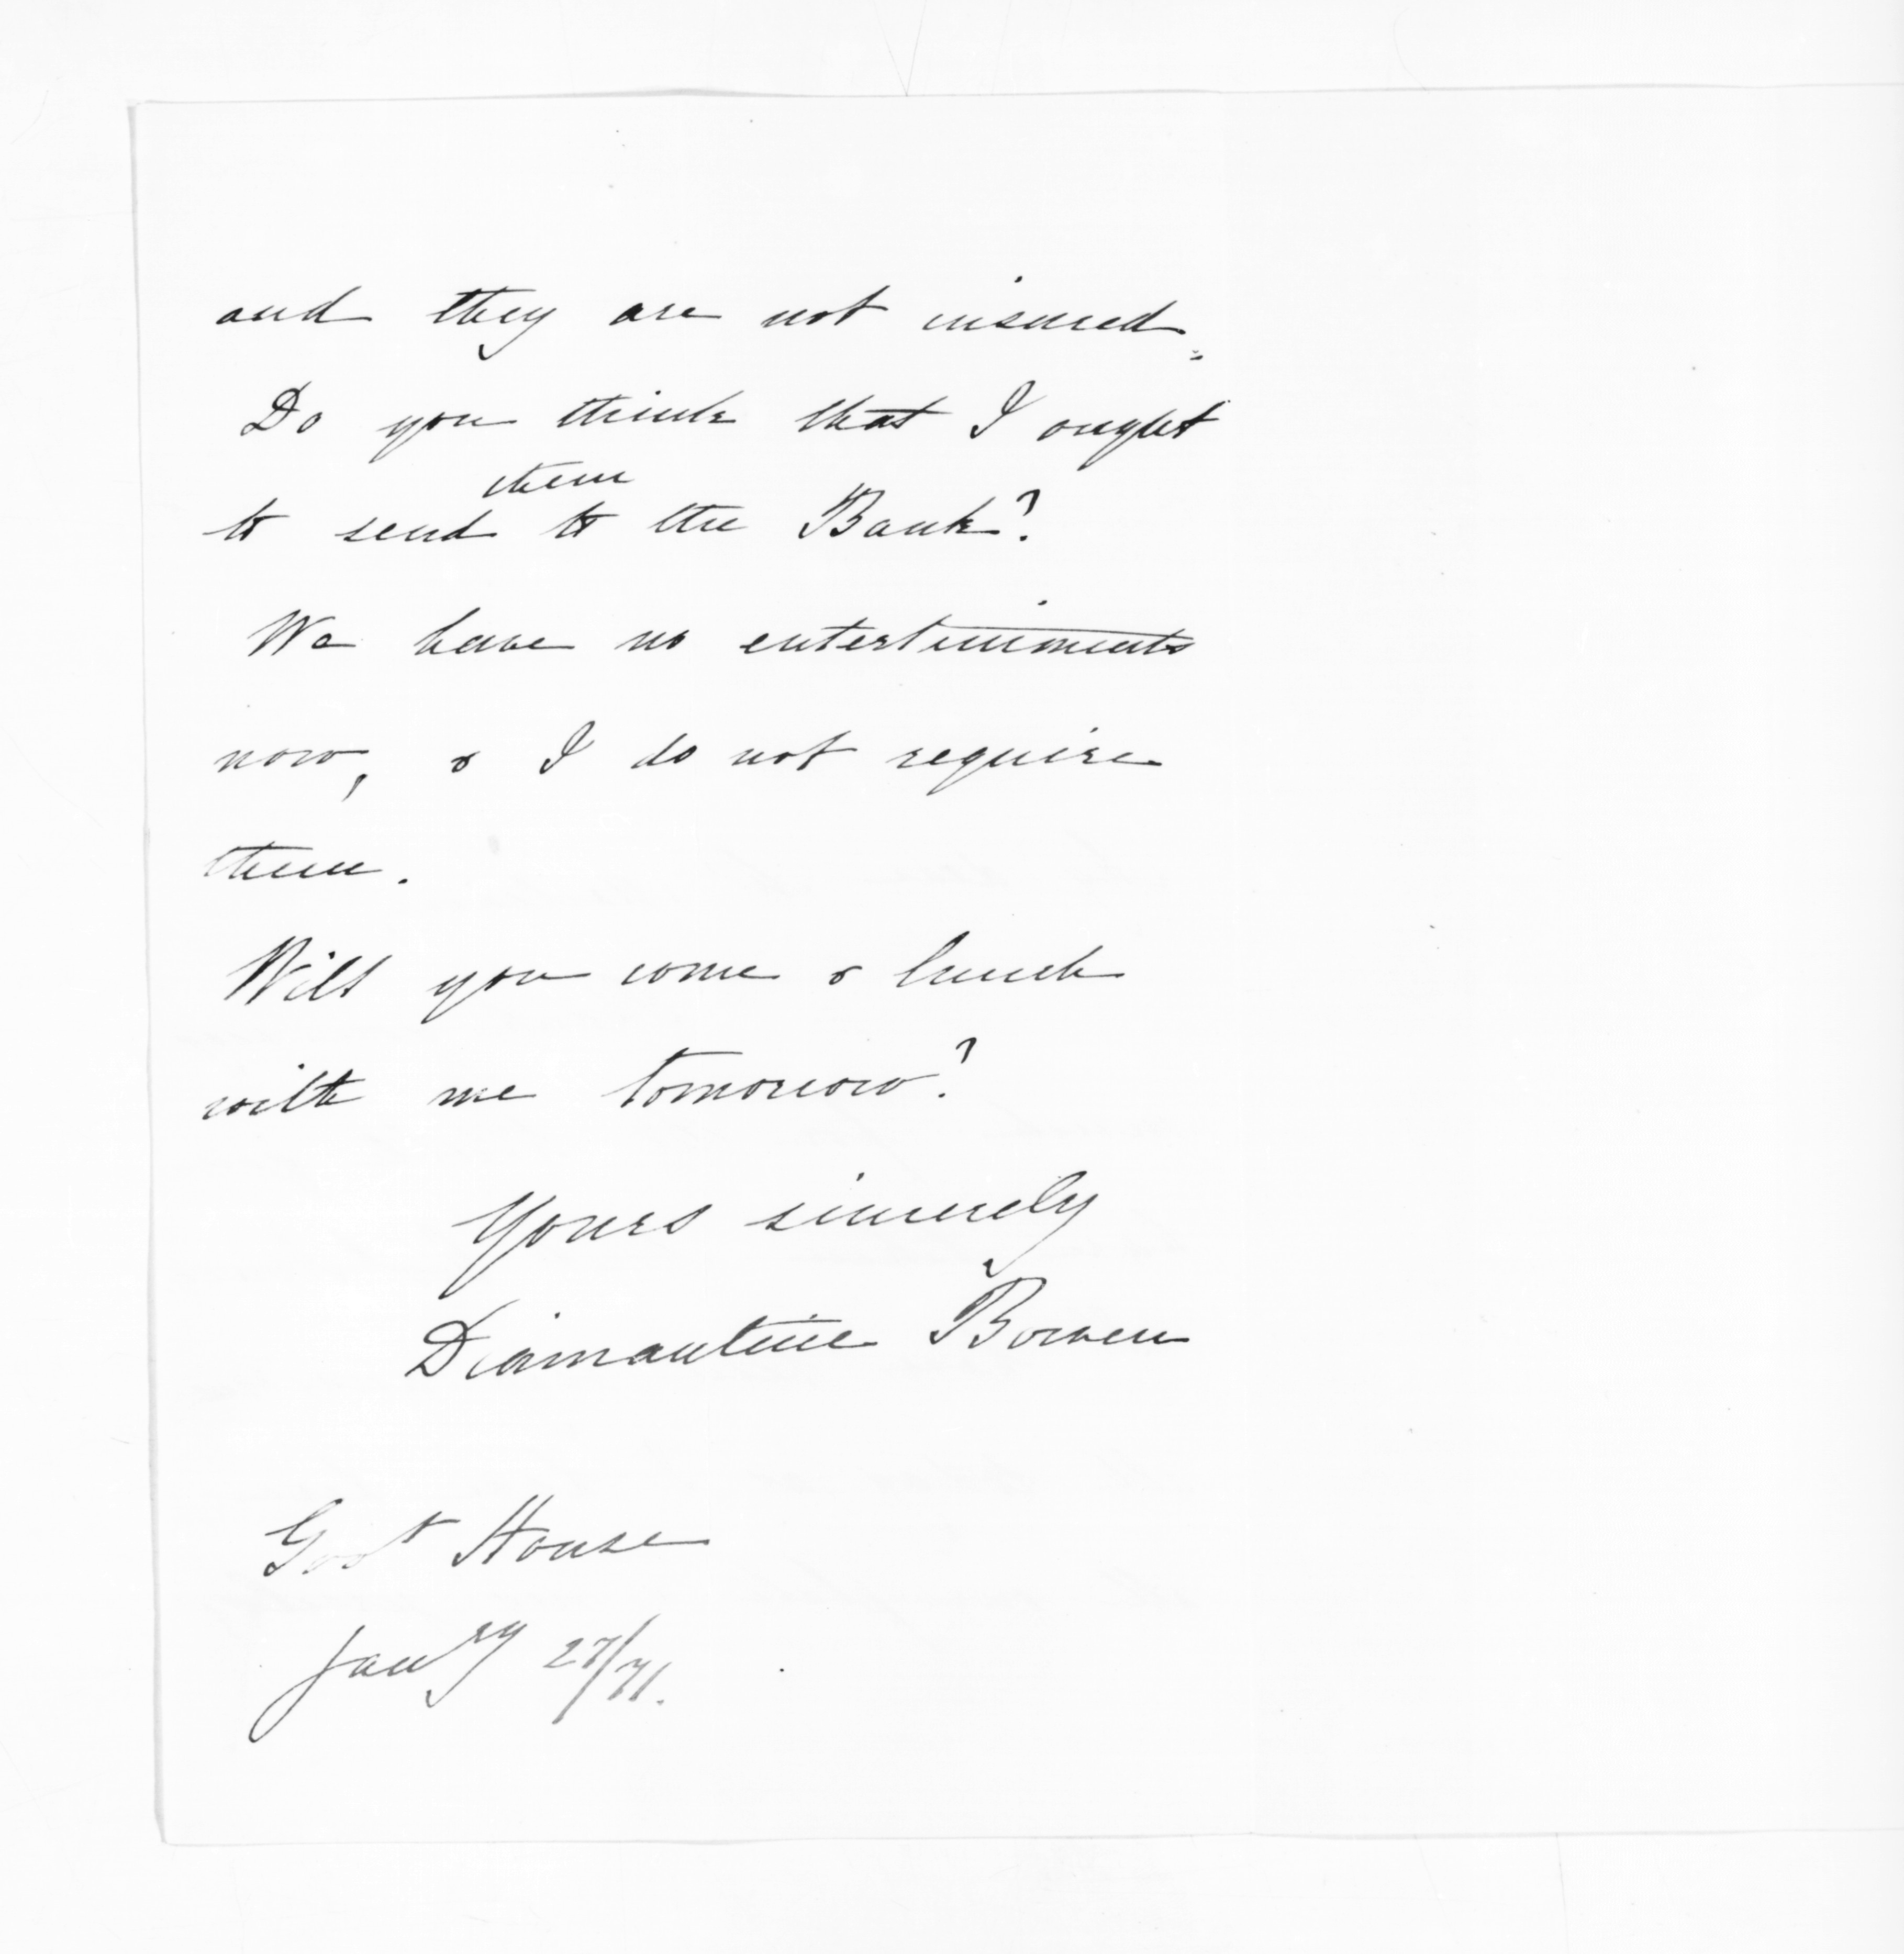 and they are not insured.
Do you think that I ought
them
to send to the Bank?
We have no entertinments
now, & I do not require
them.
Will you come & lunch
with me tomorrow?
Yours sincerely
Diamantine Bowen
Govt House
Janry 27/71.